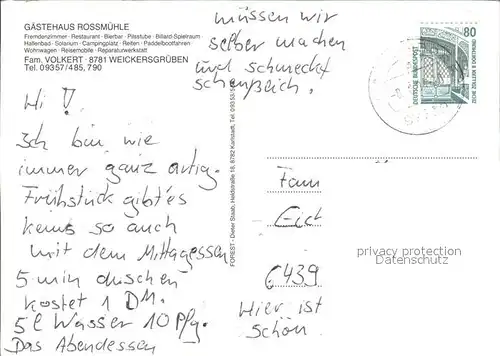 GÄSTEHAUS ROSSMÜHLE
Fremdenzimmer · Restaurant · Bierbar · Pilsstube · Billard-Spielraum
Hallenbad · Solarium · Campingplatz · Reiten · Paddelbootfahren
Wohnwagen · Reisemobile · Reparaturwerkstatt
Fam. VOLKERT · 8781 WEICKERSGRÜBEN
Tel. 09357/485, 790
Hi !
Ich bin wie
immer ganz artig.
Frühstück gibt's
keins so auch
mit dem Mittagessen
5 min duschen
kostet 1 DM.
5 l Wasser 10 Pfg.
Das Abendessen
müssen wir
selber machen
und schmeckt
scheußlich.
FOREST · Dieter Staab, Heldstraße 18, 8782 Karlstadt, Tel. 09353
80
DEUTSCHE BUNDESPOST
ZECHE ZOLLERN II DORTMUND
Fam
6439
Hier ist
schön
privacy protection
Datenschutz